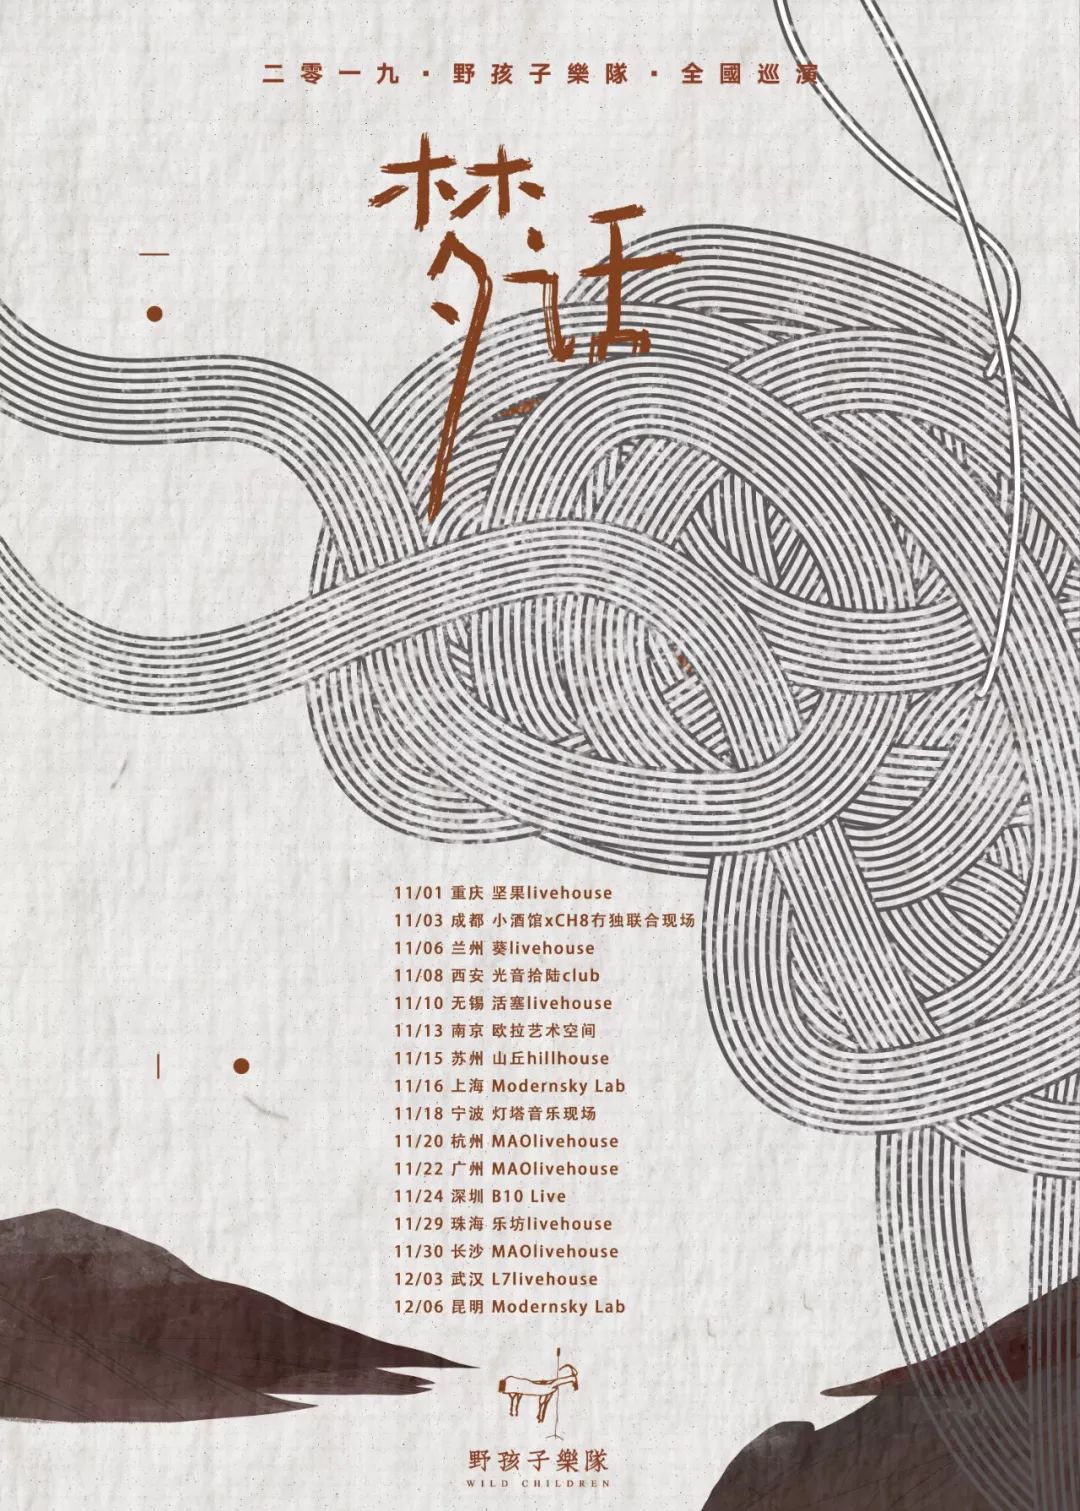 二零一九·野孩子樂隊·全國巡演
梦话
11/01 重庆 坚果livehouse
11/03 成都 小酒馆xCH8冇独联合现场
11/06 兰州 葵livehouse
11/08 西安 光音拾陆club
11/10 无锡 活塞livehouse
11/13 南京 欧拉艺术空间
11/15 苏州 山丘hillhouse
11/16 上海 Modernsky Lab
11/18 宁波 灯塔音乐现场
11/20 杭州 MAOlivehouse
11/22 广州 MAOlivehouse
11/24 深圳 B10 Live
11/29 珠海 乐坊livehouse
11/30 长沙 MAOlivehouse
12/03 武汉 L7livehouse
12/06 昆明 Modernsky Lab
野孩子樂隊
WILD CHILDREN